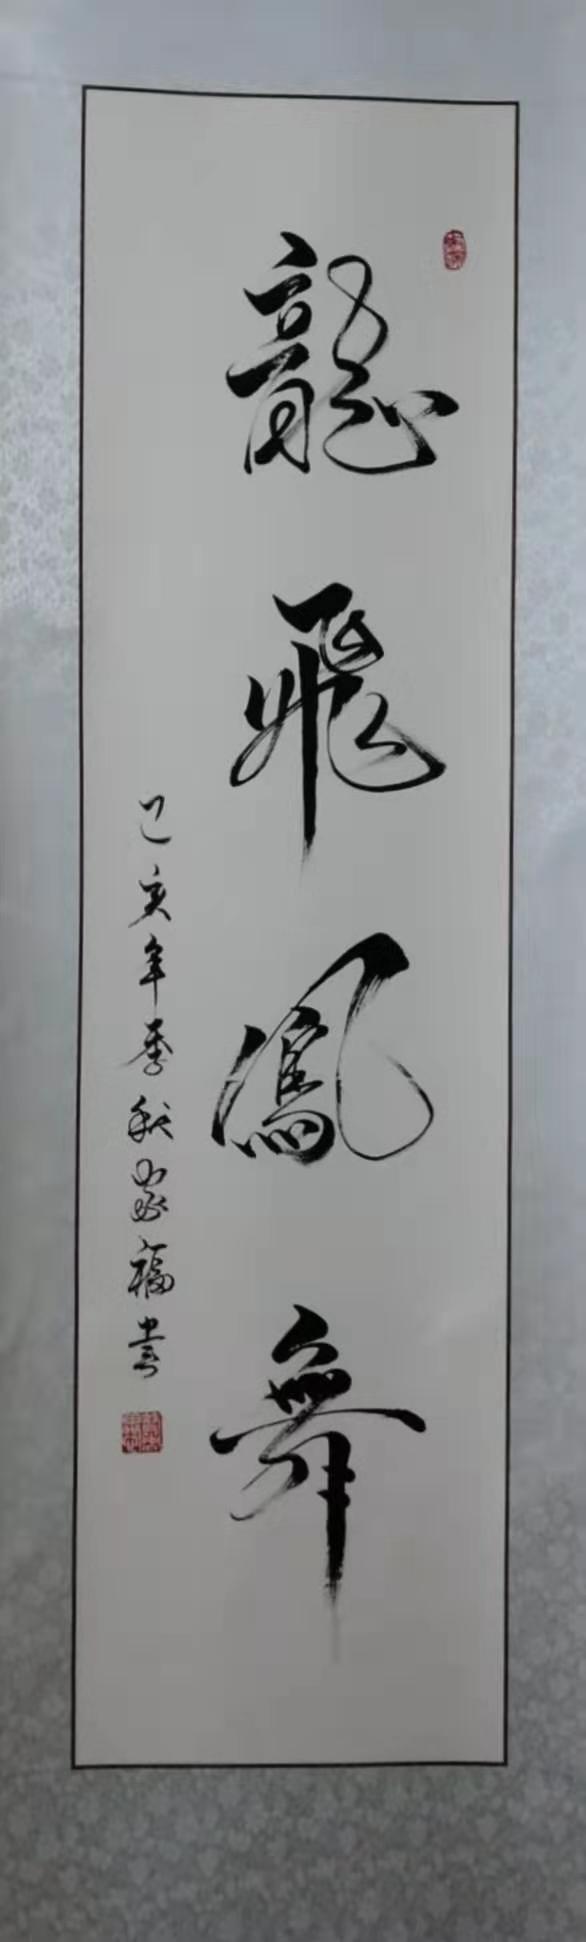 龍飛鳳舞
己亥年季秋家福書